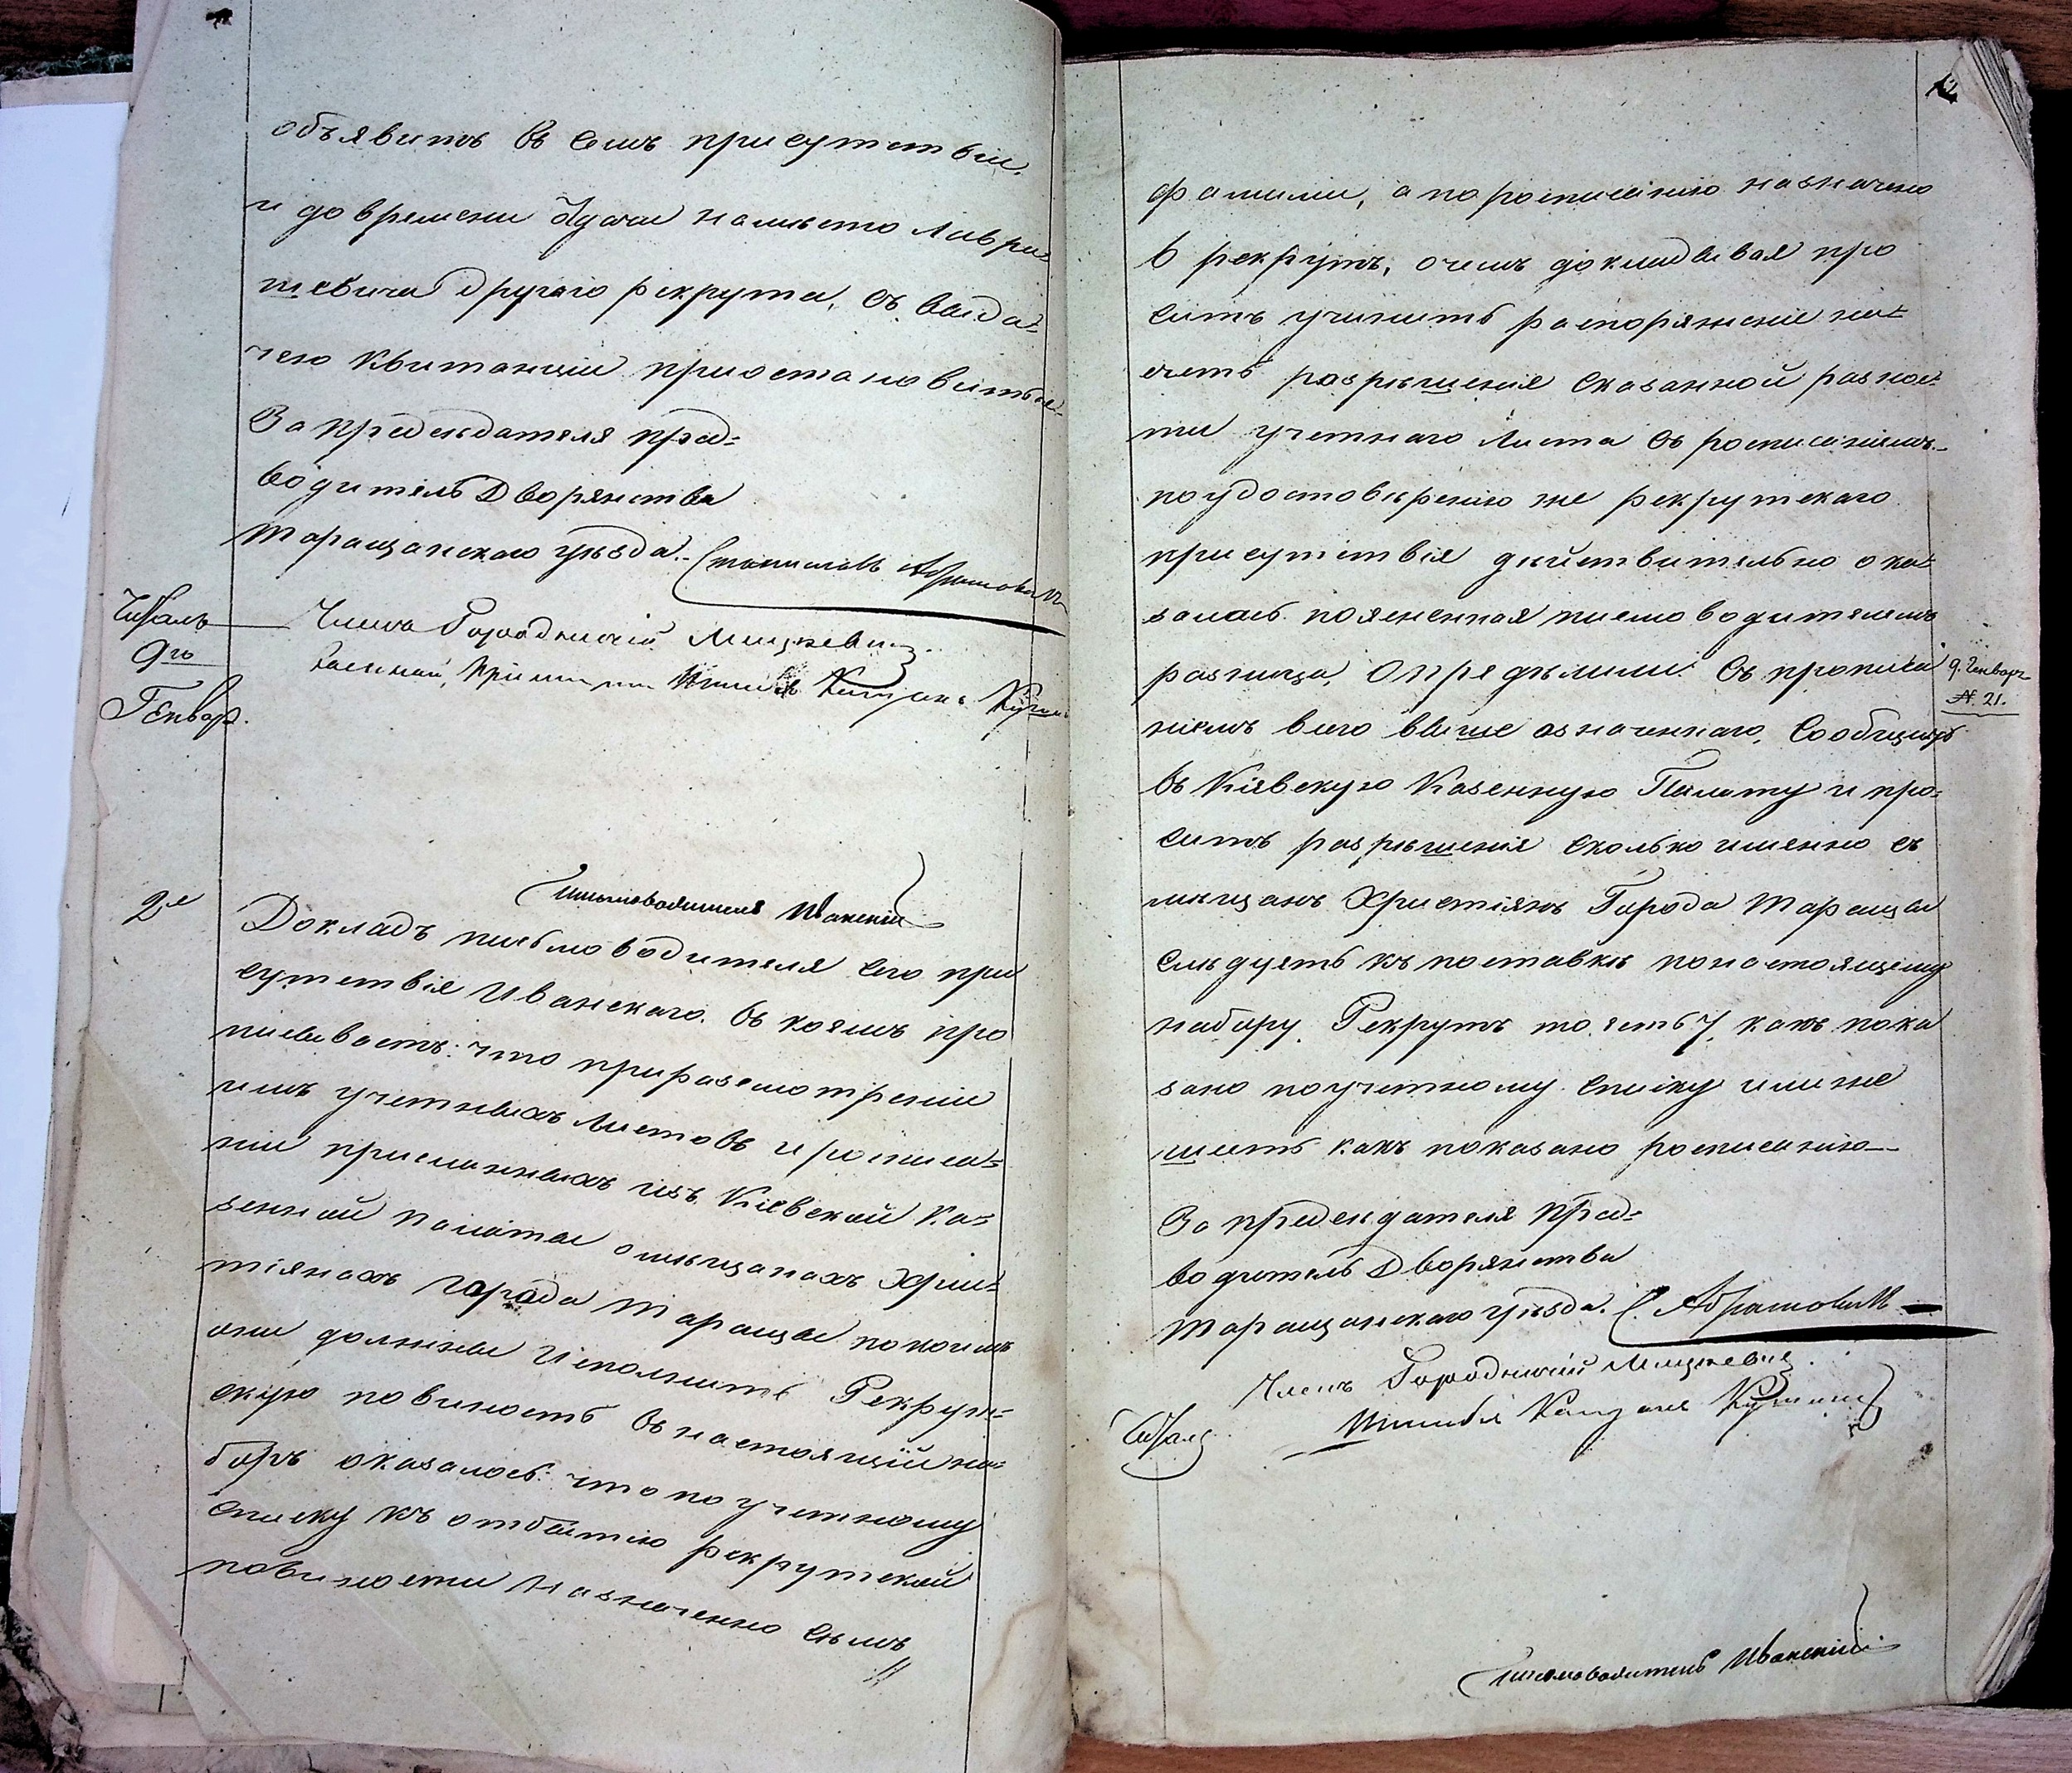 объявить въ семъ присутствіи
и до времени здачи намѣсто Лаври=
шевича другаго рекрута, съ выда=
чею квитанціи приостановиться
За предсѣдателя пред=
водитель Дворянства
Таращанскаго уѣзда Станиславъ Абрамович
Читалъ
9го
Генвар.
Членъ Городничій Мицкевич
Капитанъ
Письмоводитель Иванскій
2е
Докладъ письмоводителя сего при
сутствія Иванскаго. въ коемъ про
писываетъ: что приразсмотреніи
имъ учетныхъ листовъ и росписа=
ніи присланныхъ изъ Кіевской Ка=
зенной палаты о мѣщанахъ Хрис=
тіянахъ города Таращи покоимъ
они должны исполнить Рекрут=
скую повиность въ настоящій на=
боръ оказалось: что по учетному
списку къ отбытію рекрутской
повиности назначенно Семъ
фамилій, а по росписанію назначено
6 рекрутъ, о чемъ докладывая про
ситъ учинить распоряженіе на=
счетъ разрѣшенія сказанной разнос=
ти учетнаго листа съ росписаніемъ.
поудостовѣренію же рекрутскаго
присутствія дѣйствительно ока=
залась поясненная писмоводителемъ
разница, Опредѣлили: Съ прописа
9. Генваря
№ 21.
ніемъ всего выше означеннаго, Сообщить
въ Кіевскую Казенную Палату и про=
сить разрѣшенія сколько именно съ
мѣщанъ Христіянъ Города Таращи
слѣдуетъ къ поставкѣ понастоящему
набору. Рекрутъ то есть 7, какъ пока
зано поучетному списку или же
шесть какъ показано росписанію—
За предсѣдателя Пред=
водитель Дворянства
Таращанскаго уѣзда. С. Абрамовичъ
Членъ Городничій Мицкевич
Читалъ
Капитанъ
Письмоводитель Иванскій